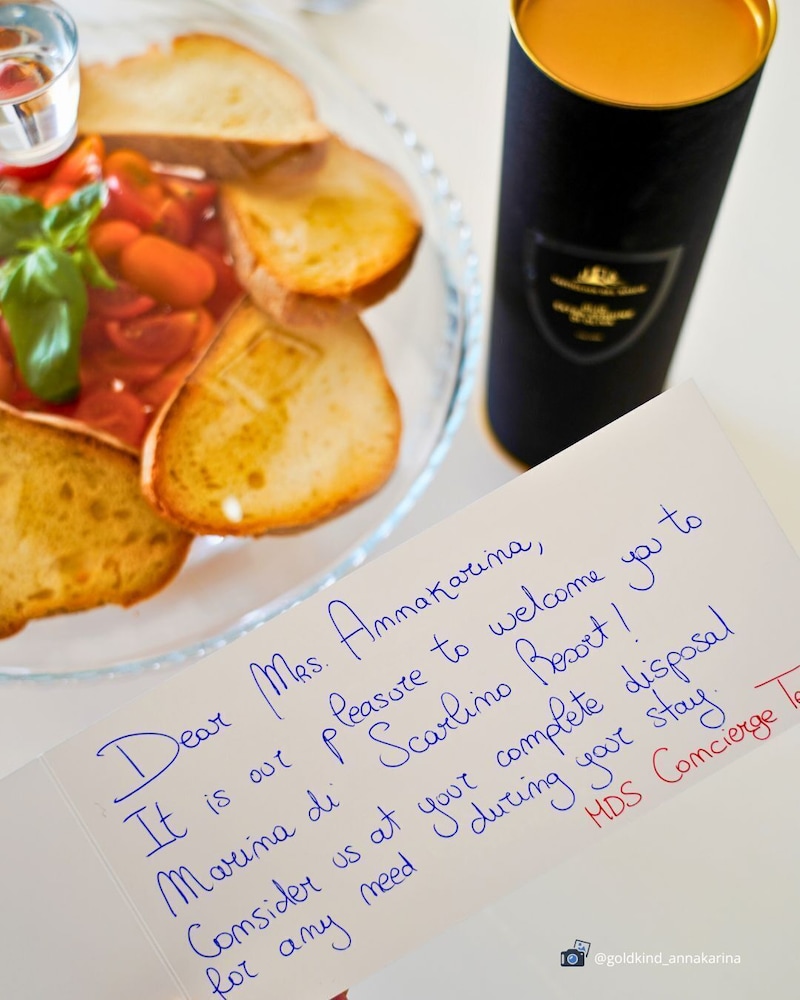 Dear Mrs. Annakarina,
It is our pleasure to welcome you to
Marina di Scarlino Resort!
Consider us at your complete disposal
for any need during your stay.
MDS Concierge
@goldkind_annakarina